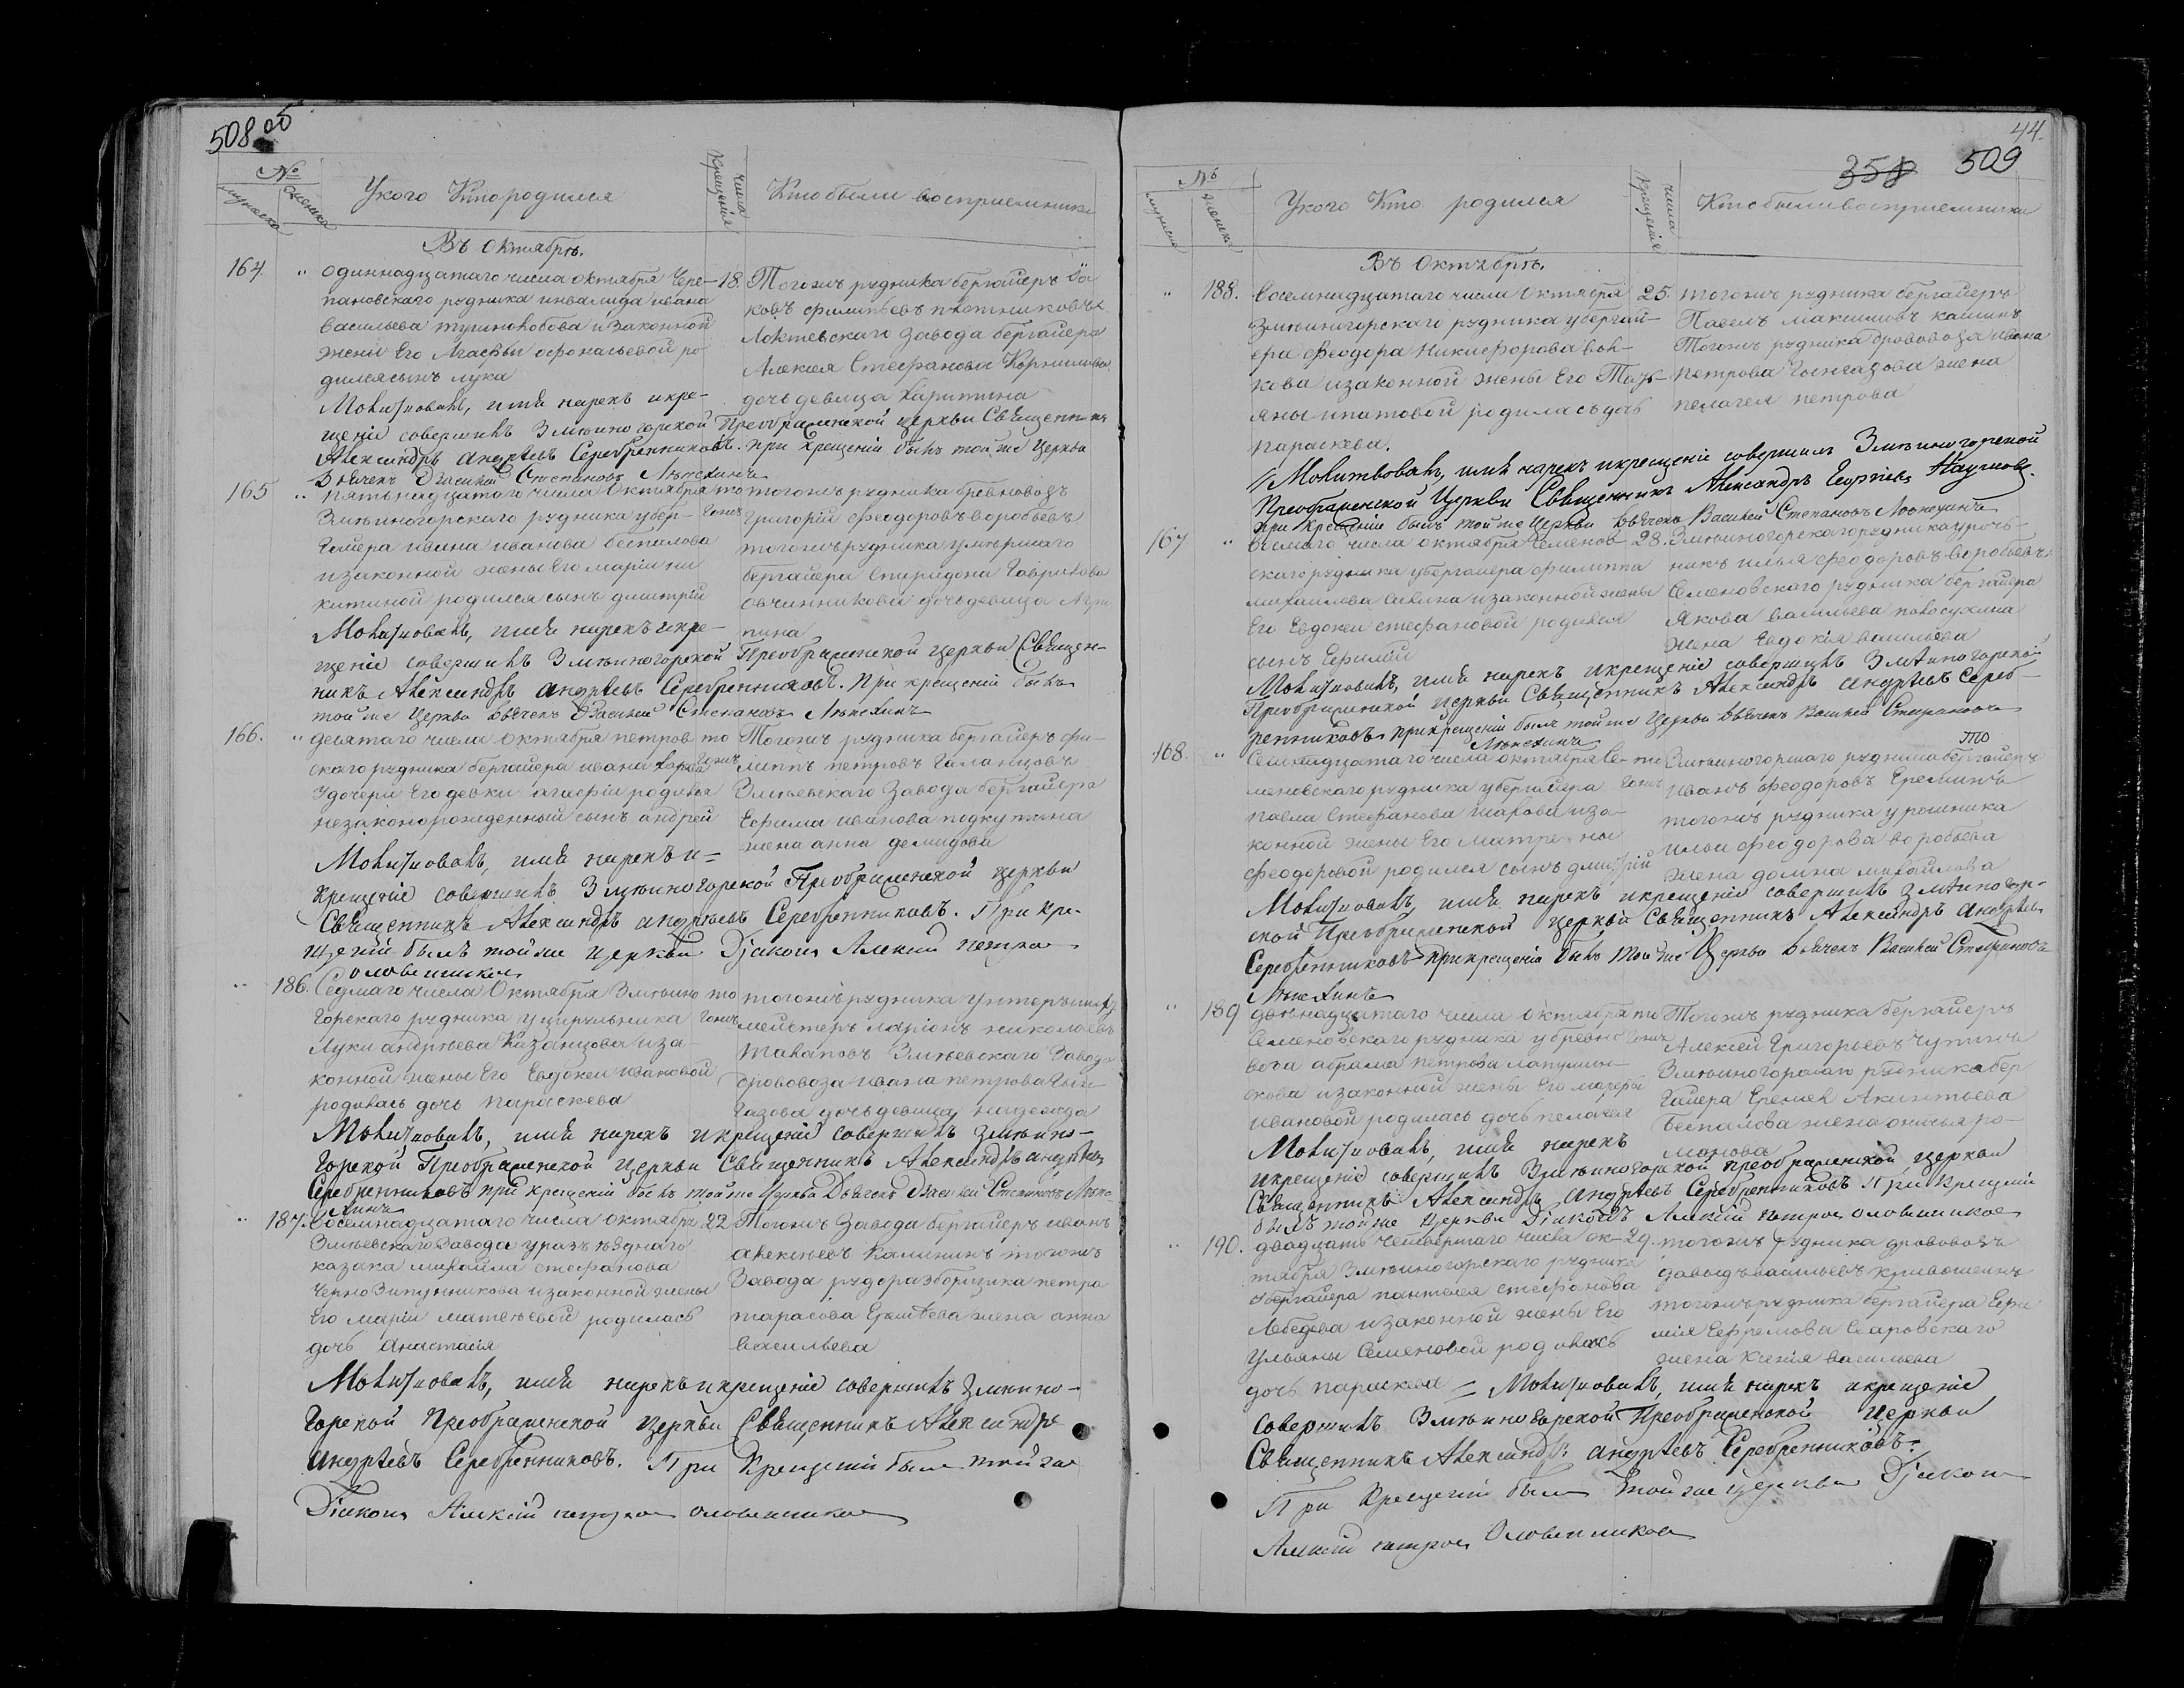 508 об
№
мужеска
женска
У кого Кто родился
числа
крещенія
Кто были восприемники
Въ Октябрѣ.
164. " одиннадцатаго числа октября Чере- 18.
пановскаго рудника инвалида ивана
васильева тушноłобова и законной
жены Его Агафьи афонасьевой ро
дился сынъ лука
Тогожъ рудника бергайеръ Яковъ
филипьевъ плотниковъ
Локтевскаго завода бергайера
Алексея Стефанова
дочь девица капитина
Молитвовалъ, имя нарекъ и кре-
щеніе совершилъ Змѣиногорской Преображенской церкви Священникъ
Александръ Андрѣевъ Серебренниковъ. при крещеніи былъ той же Церкви
Дьячекъ Василей Степановъ
165 " пятьнадцатаго числа Октября тогожъ
Змѣиногорскаго рудника у бер-
гайера ивана иванова беспалова
и законной жены Его маріи ни
китиной родился сынъ димитрій
тогожъ рудника бревновозъ
Григорій феодоровъ воробьевъ
тогожъ рудника умѣршаго
бергайера Спиридона Гаврилова
овчинникова дочь девица
Молитвовалъ, имя нарекъ и кре-
щеніе совершилъ Змѣиногорской Преображенской церкви Священ-
никъ Александръ Андрѣевъ Серебренниковъ. При крещеніи былъ
той же Церкви Дьячекъ Василей Степановъ
166. " девятаго числа Октября петров тогожъ
скаго рудника бергайера ивана
У дочери Его девки агафіи родился
незаконорожденный сынъ андрей
Тогожъ рудника бергайеръ фи-
липъ петровъ Галанцовъ
Змѣевскаго Завода бергайера
Ефима иванова
жена анна демидова
Молитвовалъ, имя нарекъ и =
крещеніе совершилъ Змѣиногорской Преображенской церкви
Священникъ Александръ Андрѣевъ Серебренниковъ. При кре-
щеніи былъ той же церкви Діаконъ Алексій петровъ
Оловянниковъ
" 186. Седмаго числа Октября Змѣино тогожъ
горскаго рудника у цирульника
Луки андрѣева Казанцова и за-
конной жены Его Евдокеи ивановой
родилась дочь параскева
тогожъ рудника
мейстеръ ларіонъ николаевъ
Змѣевскаго Завода
дрововоза ивана петрова
дочь девица надежда
Молитвовалъ, имя нарекъ и крещеніе совершилъ Змѣино-
горской Преображенской Церкви Священникъ Александръ Андрѣевъ
Серебренниковъ при крещеніи былъ той же Церкви Дьячекъ Василей Степановъ
" 187. Восемнадцатаго числа октября 22
Змѣевскаго Завода у разъѣзднаго
казака михайла стефанова
и законной жены
Его маріи матвѣевой родилась
дочь анастасія
Тогожъ Завода бергайеръ иванъ
алексѣевъ Калининъ тогожъ
Завода рудоразборщика петра
тарасова жена анна
васильева
Молитвовалъ, имя нарекъ и крещеніе совершилъ Змѣино-
горской Преображенской церкви Священникъ Александръ
Андрѣевъ Серебренниковъ. При Крещеніи былъ той же
Діаконъ Алексій петровъ оловянниковъ
44.
358 509
№
мужеска
женска
У кого Кто родился
числа
крещенія
Кто были восприемники
Въ Октябрѣ.
" 188. Восемнадцатаго числа Октября 25.
Змѣиногорскаго рудника у бергай-
ера феодора никифорова вол-
кова и законной жены Его Тать-
яны ипатовой родилась дочь
параскева.
тогожъ рудника бергайеръ
Павелъ максимовъ
Тогожъ рудника дрововоза ивана
петрова жена
пелагея петрова
Молитвовалъ, имя нарекъ и крещеніе совершилъ Змѣиногорской
Преображенской Церкви Священникъ Александръ Георгіевъ Наумовъ.
при крещеніи былъ той же Церкви Дьячекъ Василей Степановъ
167 " восмаго числа октября Семенов- 28.
скаго рудника у бергайера филиппа
михайлова и законной жены
Его Евдокеи стефановой родился
сынъ Ефимій
Змѣиногорскаго рудника уроч-
никъ илья феодоровъ воробьевъ
Семеновскаго рудника бергайера
Якова васильева
жена Евдокія васильева
Молитвовалъ, имя нарекъ и крещеніе совершилъ Змѣиногорской
Преображенской церкви Священникъ Александръ Андрѣевъ Сереб-
ренниковъ при крещеніи былъ той же Церкви Дьячекъ Василей Стефановъ
168. " Семнадцатаго числа октября Се- тогожъ
меновскаго рудника у бергайера
павла Стефанова и за-
конной жены Его матрены
феодоровой родился сынъ дмитрій
Змѣиногорскаго рудника бергайеръ
иванъ феодоровъ Ереминъ
тогожъ рудника урочника
ильи феодорова воробьева
жена домна михайлова
Молитвовалъ, имя нарекъ и крещеніе совершилъ Змѣиногор-
ской Преображенской церкви Священникъ Александръ Андрѣевъ
Серебренниковъ при крещеніи былъ той же Церкви Дьячекъ Василей Стефановъ
" 189 двенадцатаго числа октября тогожъ
Семеновскаго рудника у бревно
воза абрама петрова
и законной жены Его марфы
ивановой родилась дочь пелагея
Тогожъ рудника бергайеръ
Алексей Григорьевъ Чупинъ
Змѣиногорскаго рудника бер
гайера Еремея Акинтьева
беспалова жена ро-
манова
Молитвовалъ, имя нарекъ
и крещеніе совершилъ Змѣиногорской Преображенской церкви
Священникъ Александръ Андрѣевъ Серебренниковъ При Крещеніи
былъ той же Церкви Діаконъ Алексій петровъ оловянниковъ
" 190. двадцать четвертаго числа ок- 29.
тября Змѣиногорскаго рудника
у бергайера пантелея стефанова
Лебедева и законной жены Его
Ульяны Семеновой родилась
дочь параскева
тогожъ рудника дрововозъ
давыдъ васильевъ кривошеинъ
тогожъ рудника бергайера Ефи
мія Ефремова
жена Ксенія васильева
= Молитвовалъ, имя нарекъ и крещеніе
совершилъ Змѣиногорской Преображенской церкви
Священникъ Александръ Андрѣевъ Серебренниковъ.
При Крещеніи былъ той же церкви Діаконъ
Алексій петровъ Оловянниковъ